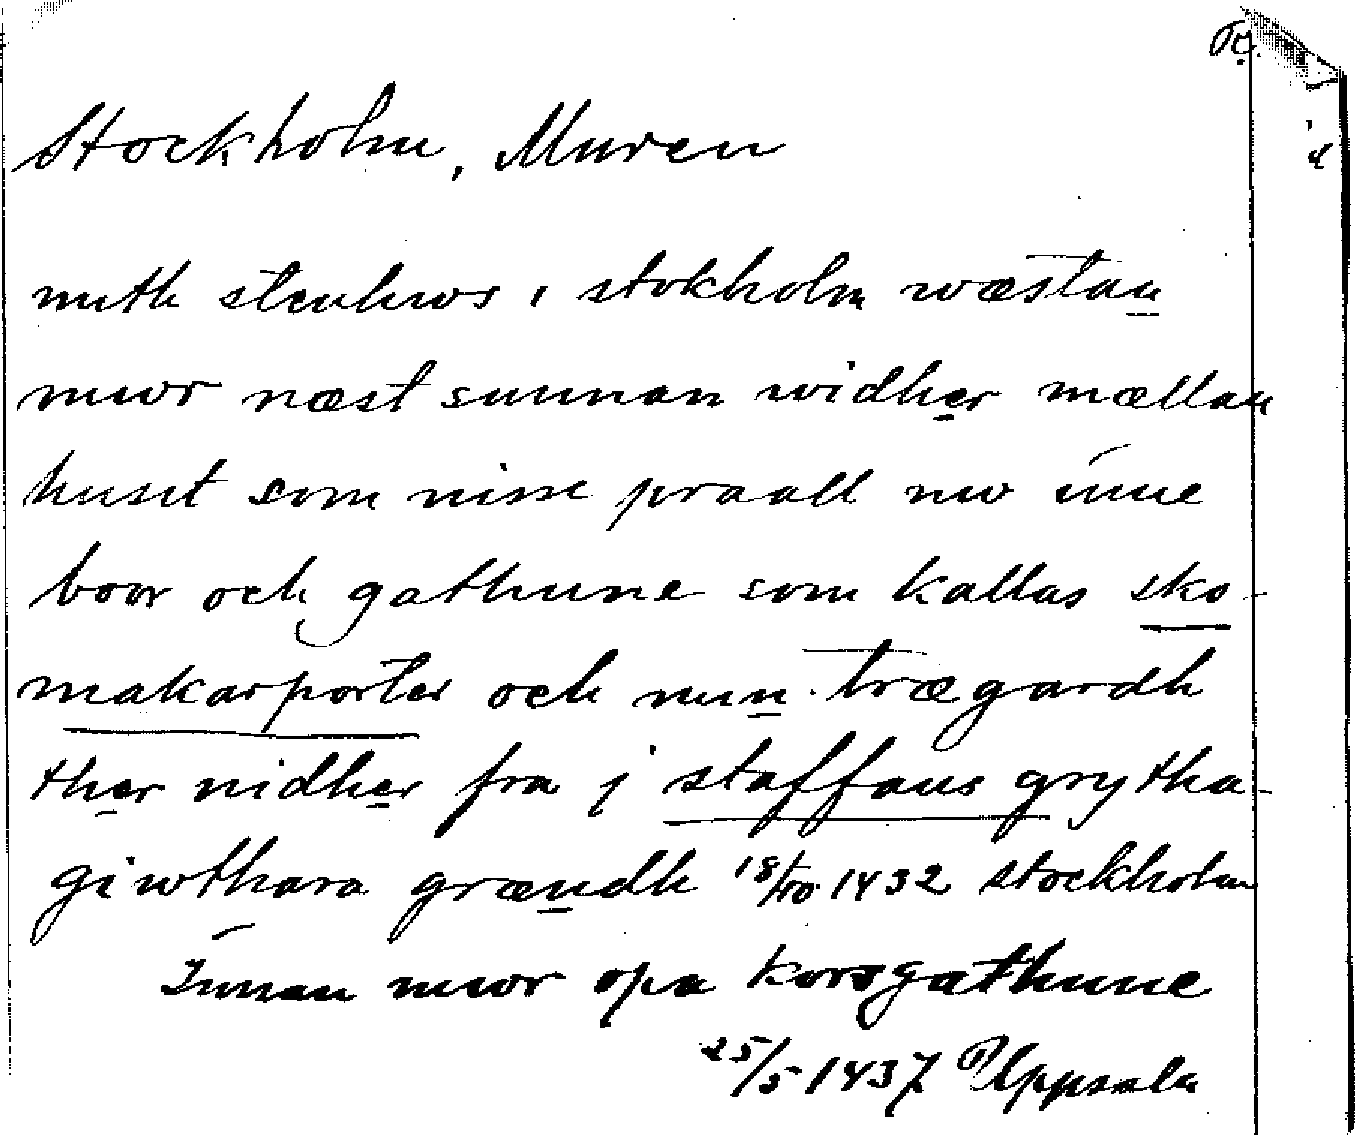 Stockholm, Muren
mith stenhws i stokholm wæstan
mwr næst sunnan widher mællan
huset som nisse praall nw inne
boor och gathune som kallas sko-
makarporter och min trægardh
ther nidher fra j staffans grytha-
giwthara grændh 18/10 1432 Stockholm
Innan mwr opa korsgathune
25/5 1437 Uppsala